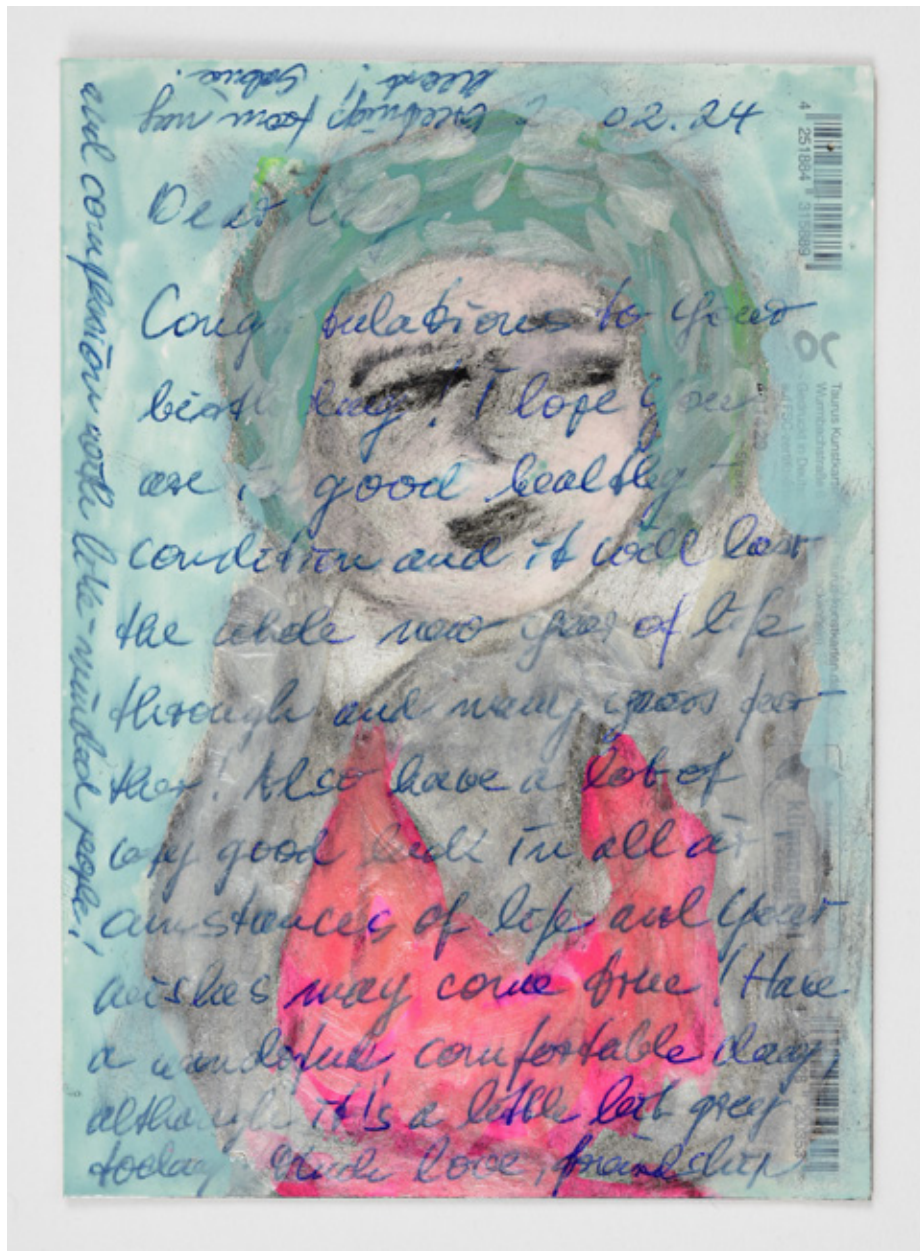 02.24
Dear
Congratulations to your
birthday! I hope you
are in good healthy
condition and it will last
the whole new year of life
through and many years fur-
ther! Also have a lot of
very good luck in all cir-
cumstances of life and your
wishes may come true! Have
a wonderful comfortable day,
although it's a little bit grey
today! Much love, friendship
and compassion with like-minded people!
Greetings from my
heart! Gabria.
4 251884 315889
Taurus Kunstkarten
Wurmbachstraße
Gedruckt in